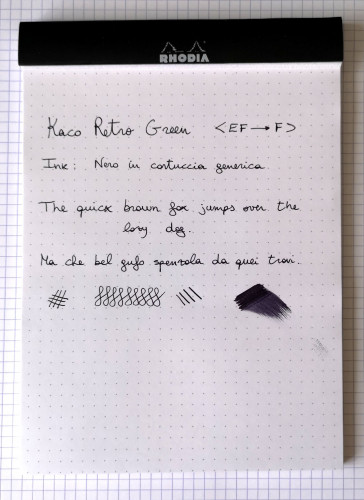 RHODIA
Kaco Retro Green <EF→F>
Ink: Nero in cartuccia generica
The quick brown fox jumps over the
lazy dog.
Ma che bel gufo spenzola da quei travi.